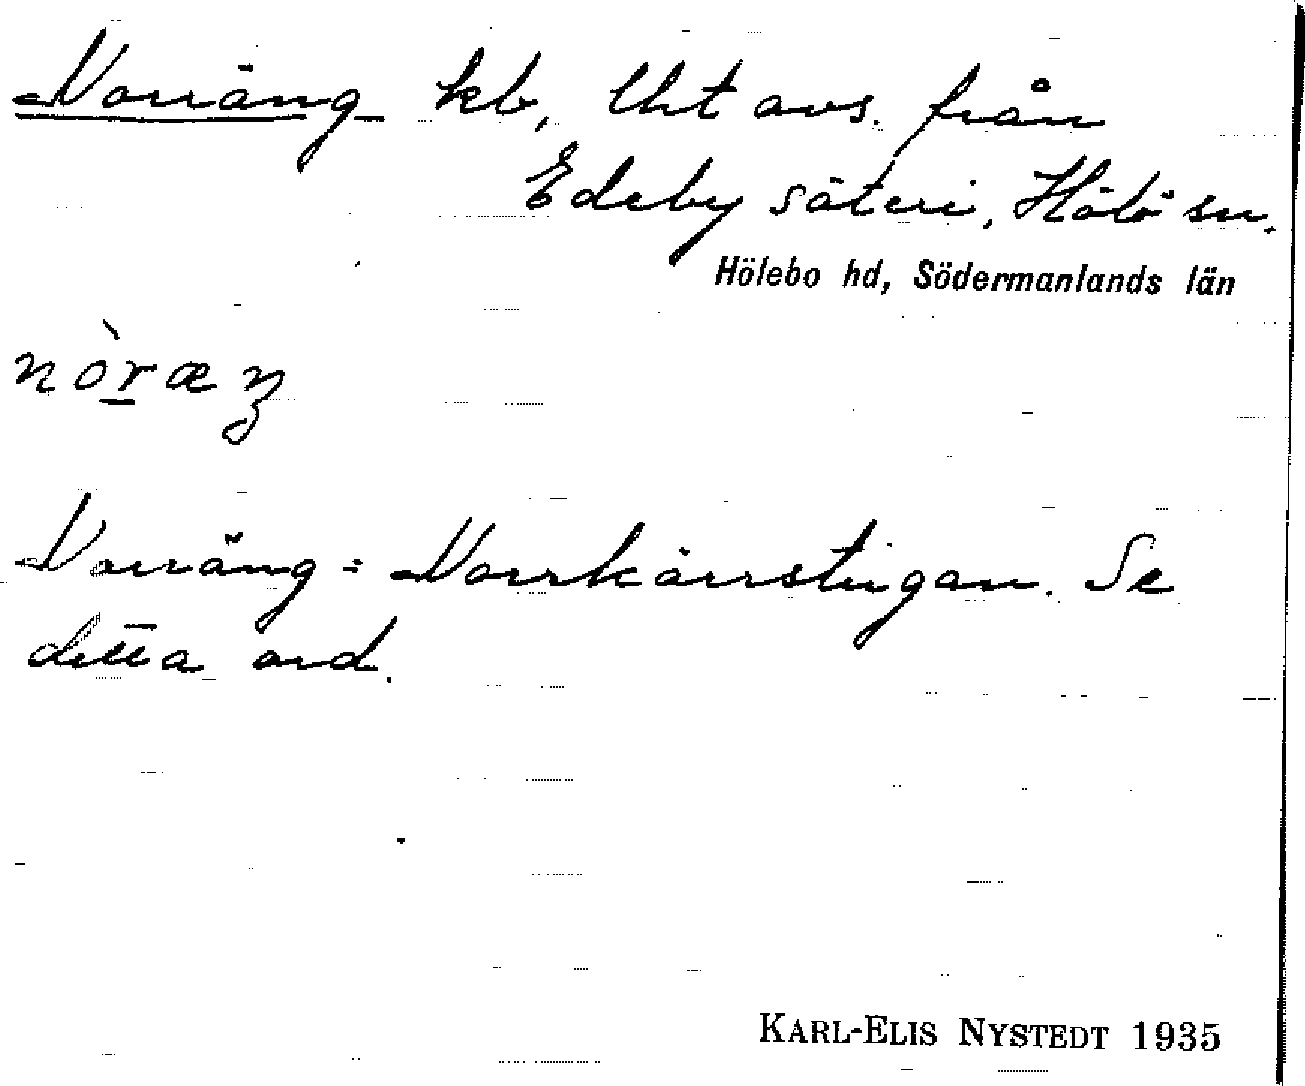 Norräng kb, lht avs. från
Edeby säteri, Hölö sn.
Hölebo hd, Södermanlands län
nòræŋ
Norräng = Norrkärrstugan. Se
detta ord.
KARL-ELIS NYSTEDT 1935